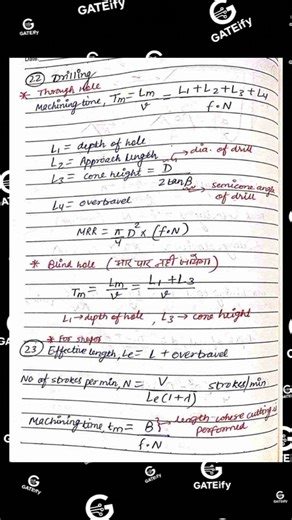 GATEify
GATEify
Date
(22) Drilling
* Through Hole
Machining time, Tm = Lm/v = L1 + L2 + L3 + L4 / f.N
L1 = depth of hole
L2 = Approach length
→ dia. of drill
L3 = cone height = D / 2tanβ
→ semicone angle of drill
L4 = overtravel
MRR = π/4 D² × (f.N)
* Blind hole (आर पार नहीं जायेगा)
Tm = Lm/v = L1 + L3 / v
L1 → depth of hole, L3 → cone height
* For shaper
(23) Effective length, Le = L + overtravel
No of strokes per min, N = V / Le(1+λ) strokes/min
Machining time, tm = B / f.N
→ length where cutting is performed
GATEify
GATEify
GATEify
GATEify